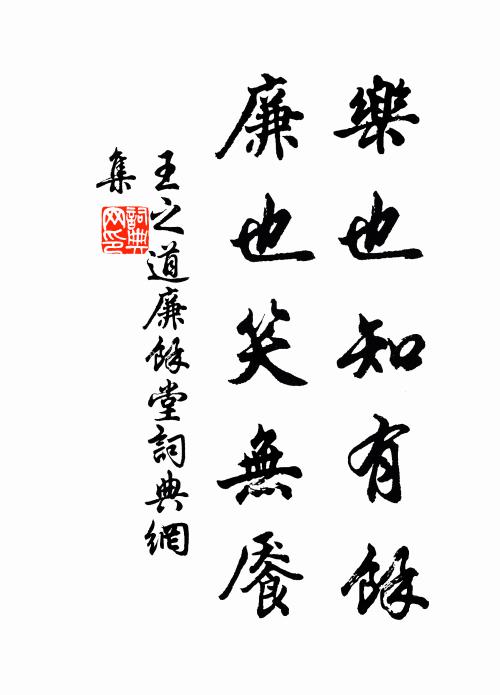 樂也知有餘
廉也笑無饜
王之道廉餘堂詞典網
集
詞典网印